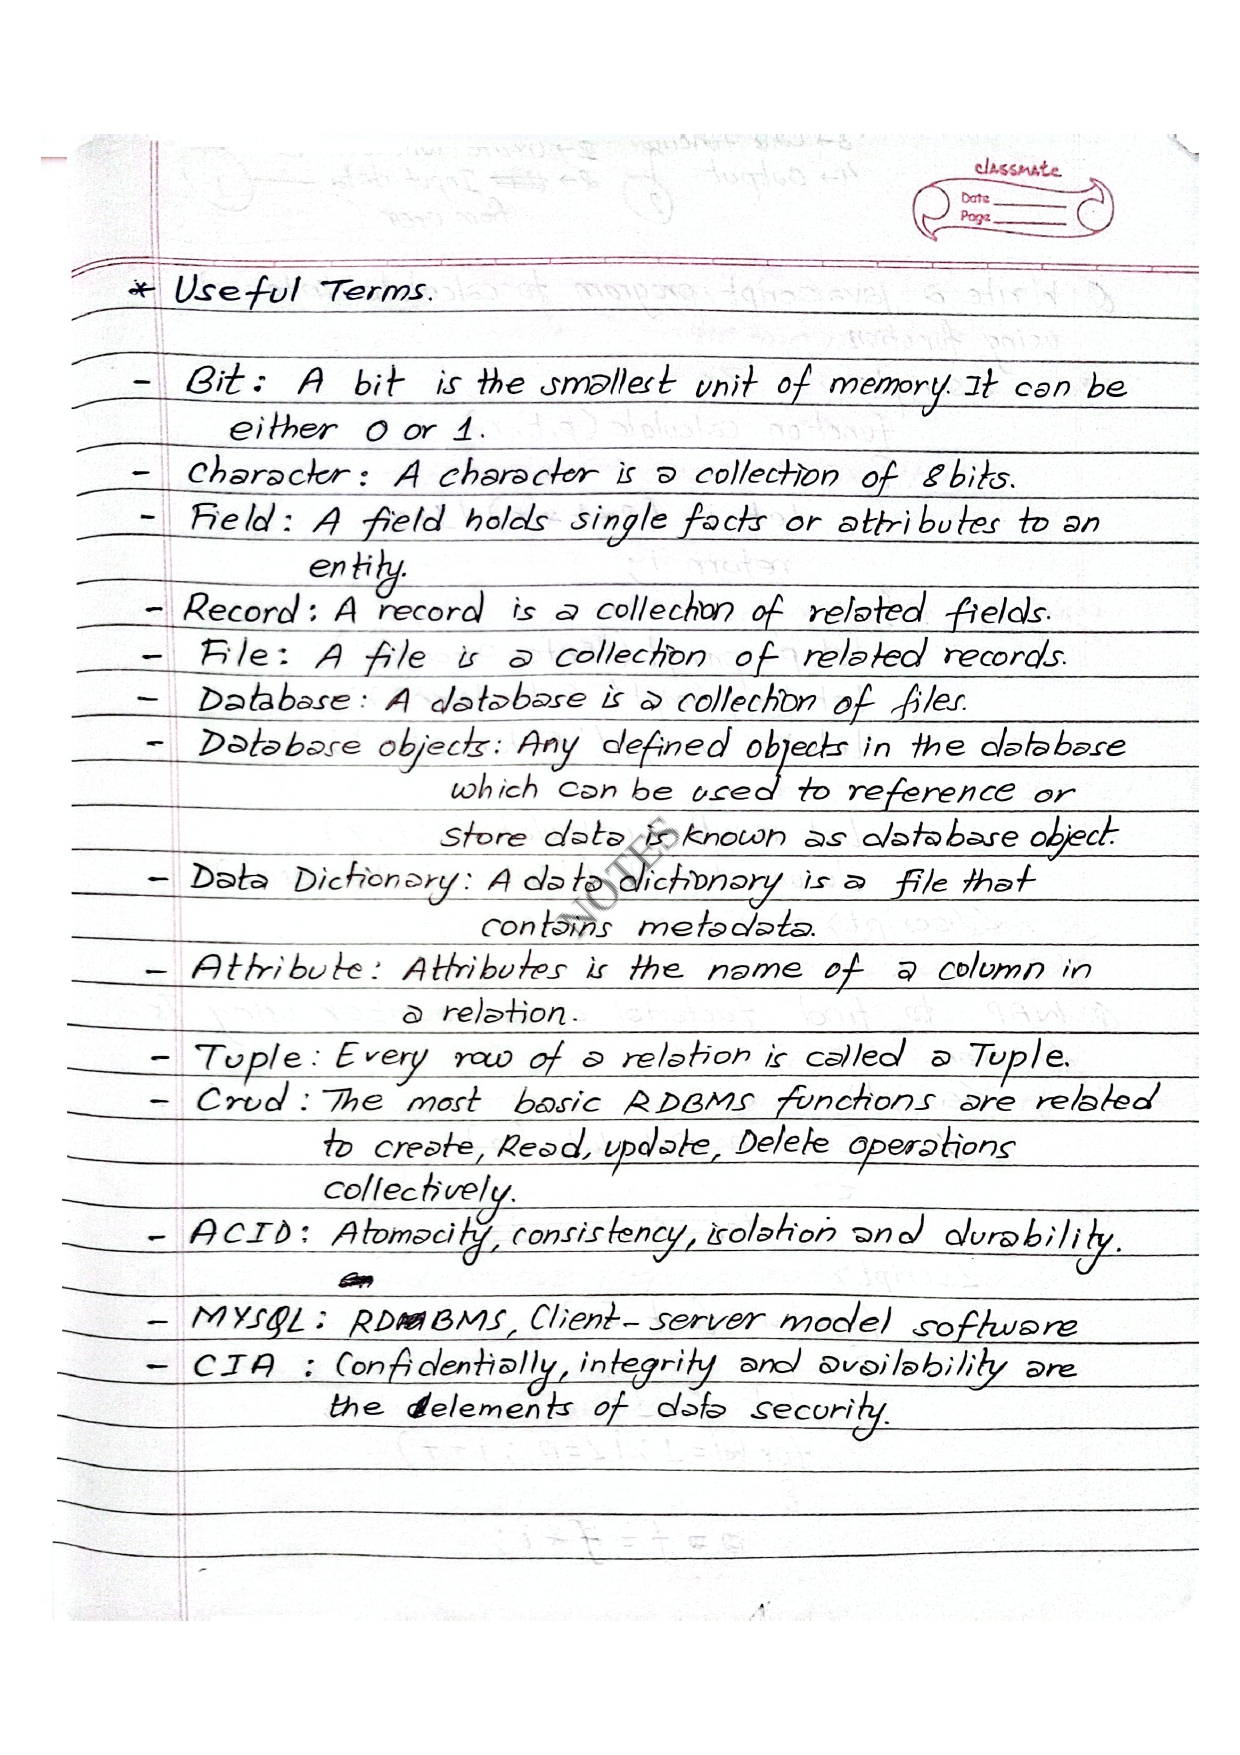 classmate
Date
Page
* Useful Terms.
- Bit : A bit is the smallest unit of memory. It can be
either 0 or 1.
- Character : A character is a collection of 8 bits.
- Field : A field holds single facts or attributes to an
entity.
- Record : A record is a collection of related fields.
- File : A file is a collection of related records.
- Database : A database is a collection of files.
- Database objects : Any defined objects in the database
which can be used to reference or
store data is known as database object.
NOTES
- Data Dictionary : A data dictionary is a file that
contains metadata.
- Attribute : Attributes is the name of a column in
a relation.
- Tuple : Every row of a relation is called a Tuple.
- Crud : The most basic RDBMS functions are related
to create, Read, update, Delete operations
collectively.
- ACID : Atomacity, consistency, isolation and durability.
- MYSQL : RDBMS, Client-server model software
- CIA : Confidentially, integrity and availability are
the elements of data security.